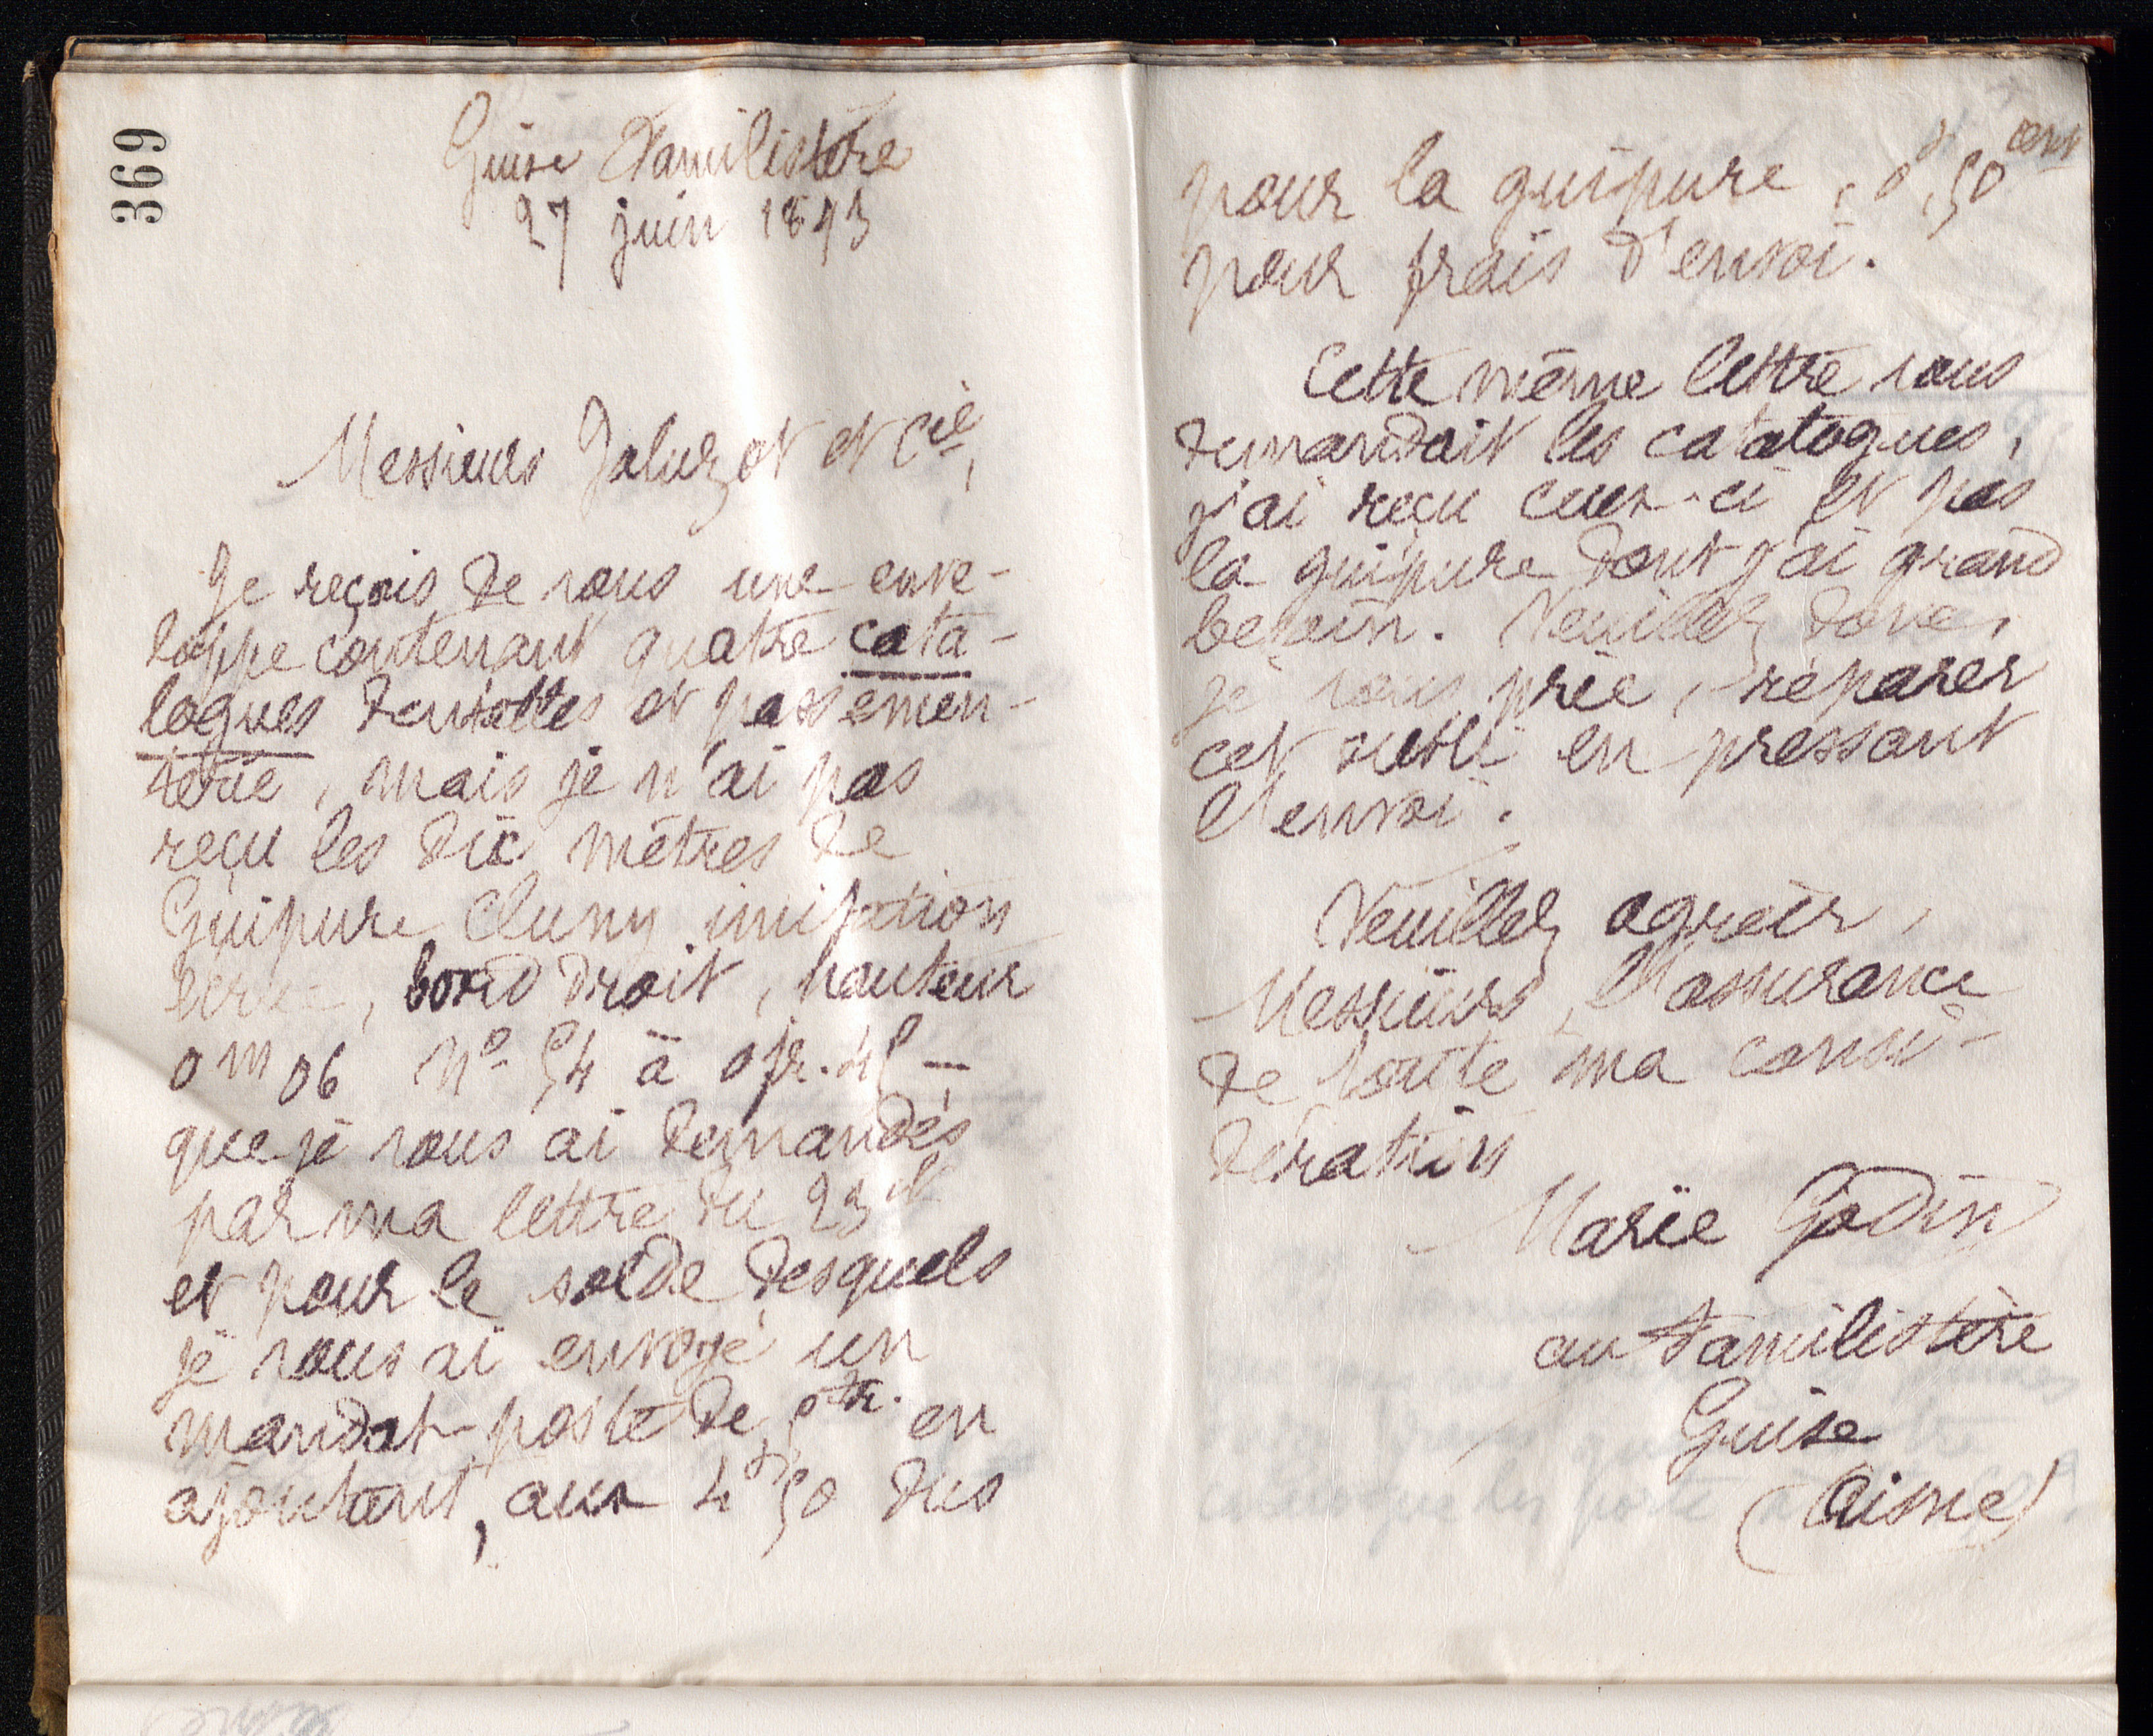 369
Guise Familistère
27 juin 1893
Messieurs Jaluzot et Cie,
Je reçois de vous une enve-
loppe contenant quatre cata-
logues dentelles et passemen-
terie, mais je n'ai pas
reçu les dix mètres de
Guipure Cluny imitation
bord droit, hauteur
0 m 06 No 54 à 0 fr. 45 —
que je vous ai demandés
par ma lettre du 23 ct
et pour le solde desquels
je vous ai envoyé un
mandat-poste de 5 fr. en
ajoutant, aux 4 f 50 dus
pour la guipure, 0 f, 50 cent
pour frais d'envoi.
Cette même lettre vous
demandait les catalogues,
j'ai reçu ceux-ci et pas
la guipure dont j'ai grand
besoin. Veuillez donc,
je vous prie, réparer
cet oubli en pressant
l'envoi.
Veuillez agréer,
Messieurs, l'assurance
de toute ma consi-
dération
Marie Godin
au Familistère
Guise
(Aisne)